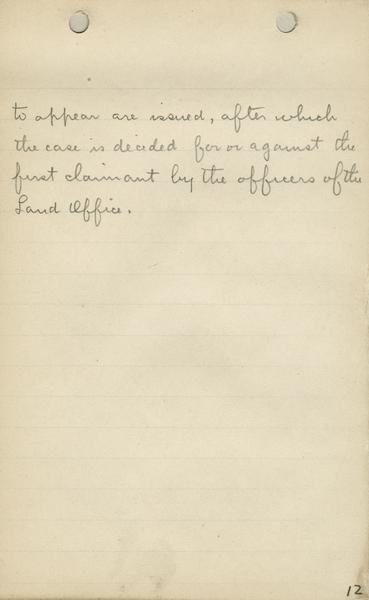 to appear are issued, after which
the case is decided for or against the
first claimant by the officers of the
Land Office.
12